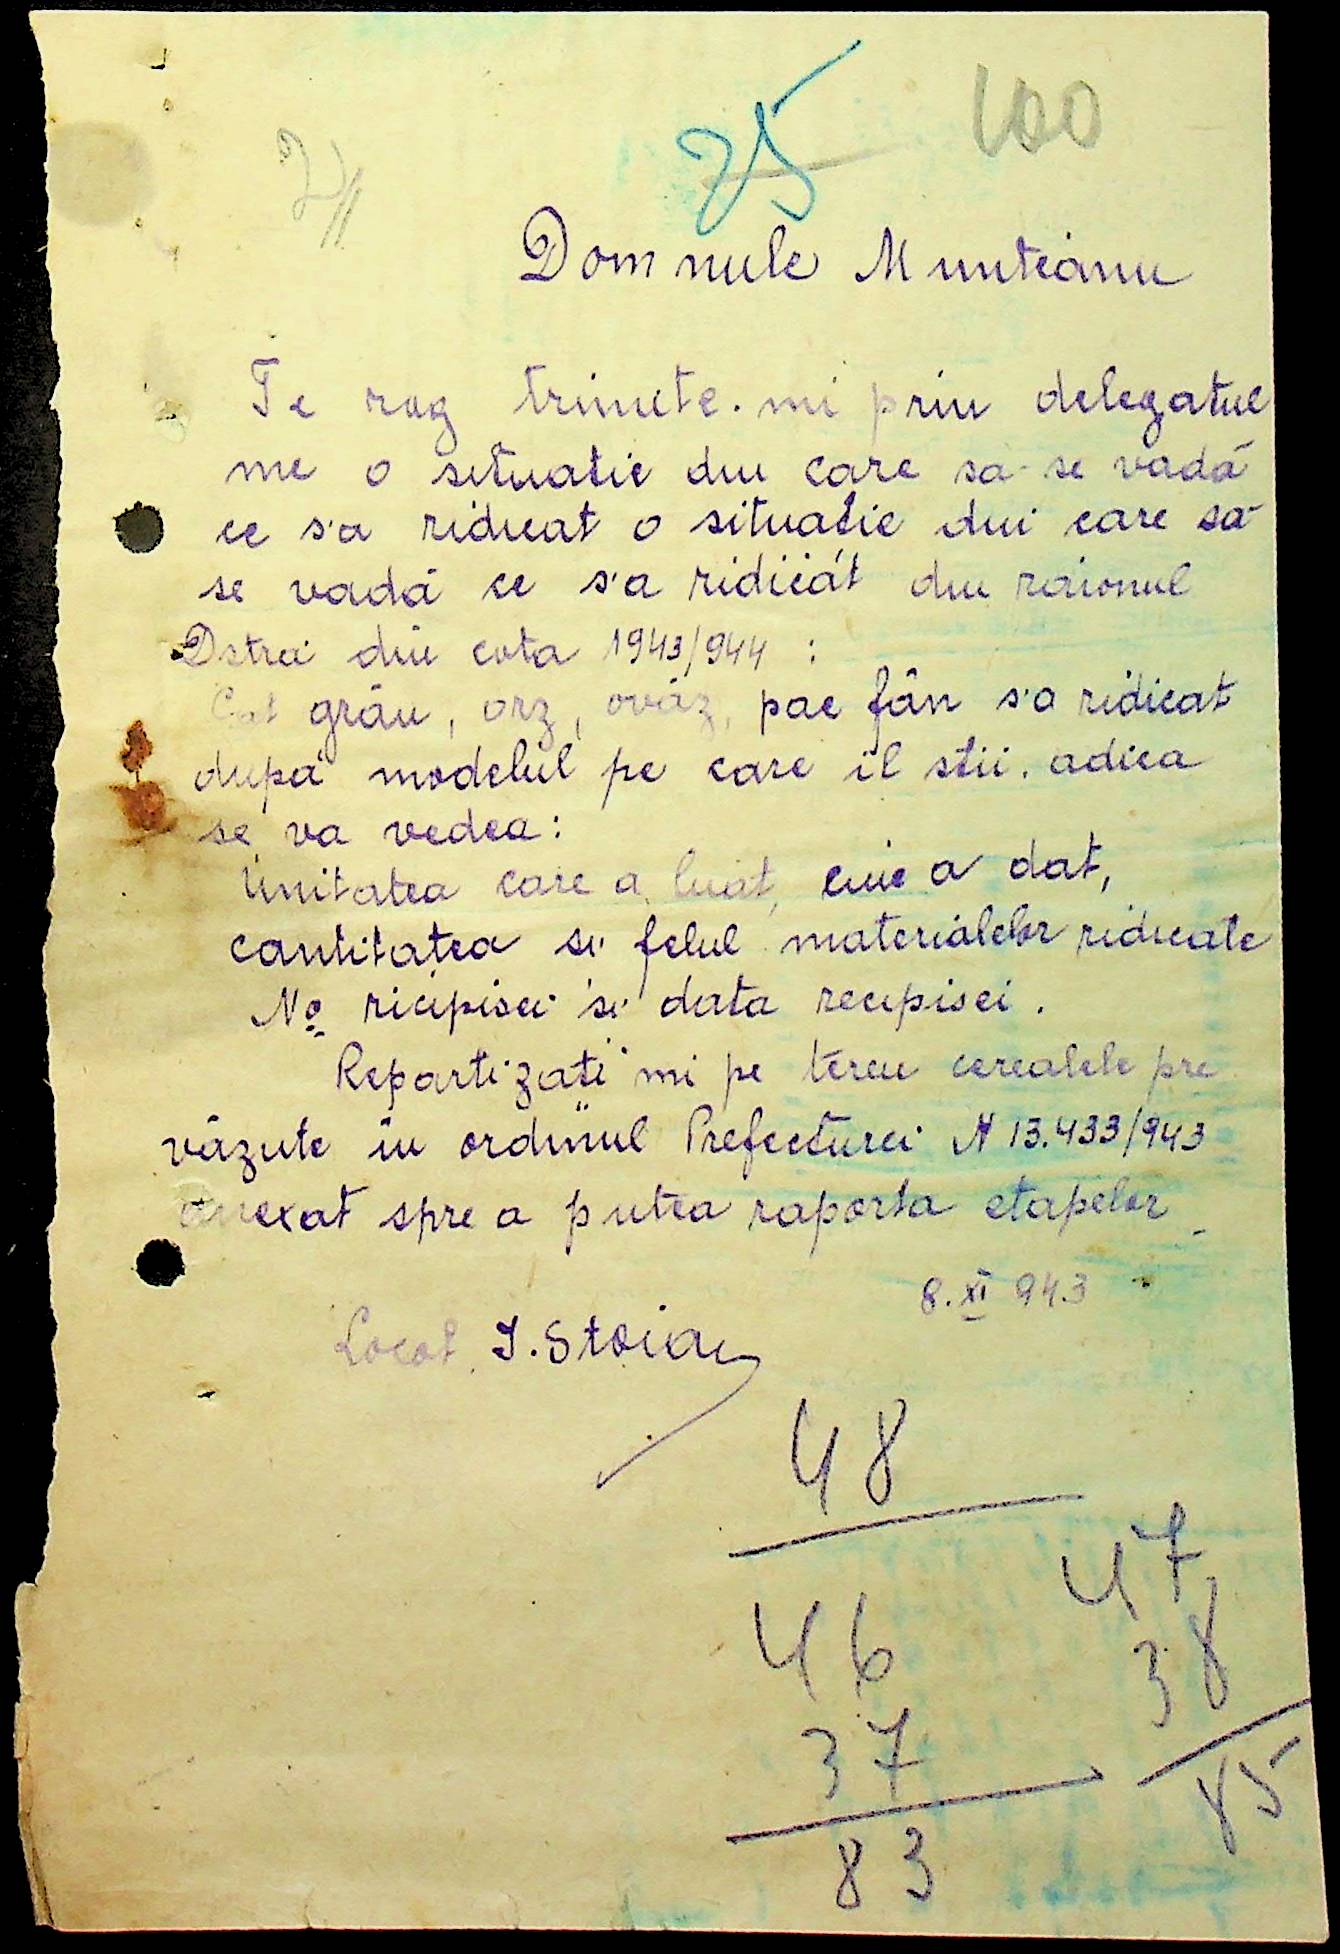 75
100
Domnule Munteanu
Te rog trimete-mi prin delegatul
me o situatie din care sa se vadă
ce s'a ridicat o situatie din care să
se vadă ce s'a ridicăt din raionul
Dstră din cota 1943/944 :
Cat grâu, orz, ovăz, pae fân s'a ridicat
după modelul pe care îl stii. adica
se va vedea:
Unitatea care a luat, cine a dat,
cantitatea si felul materialelor ridicate
No ricipisei si data recipisei.
Repartizati mi pe tereu cerealele pre
văzute în ordinul Prefecturei N 13.433/943
anexat spre a putea raporta etapelor
8.XI 943
Locot. I. Stoian
48
47
46
38
37
85
83